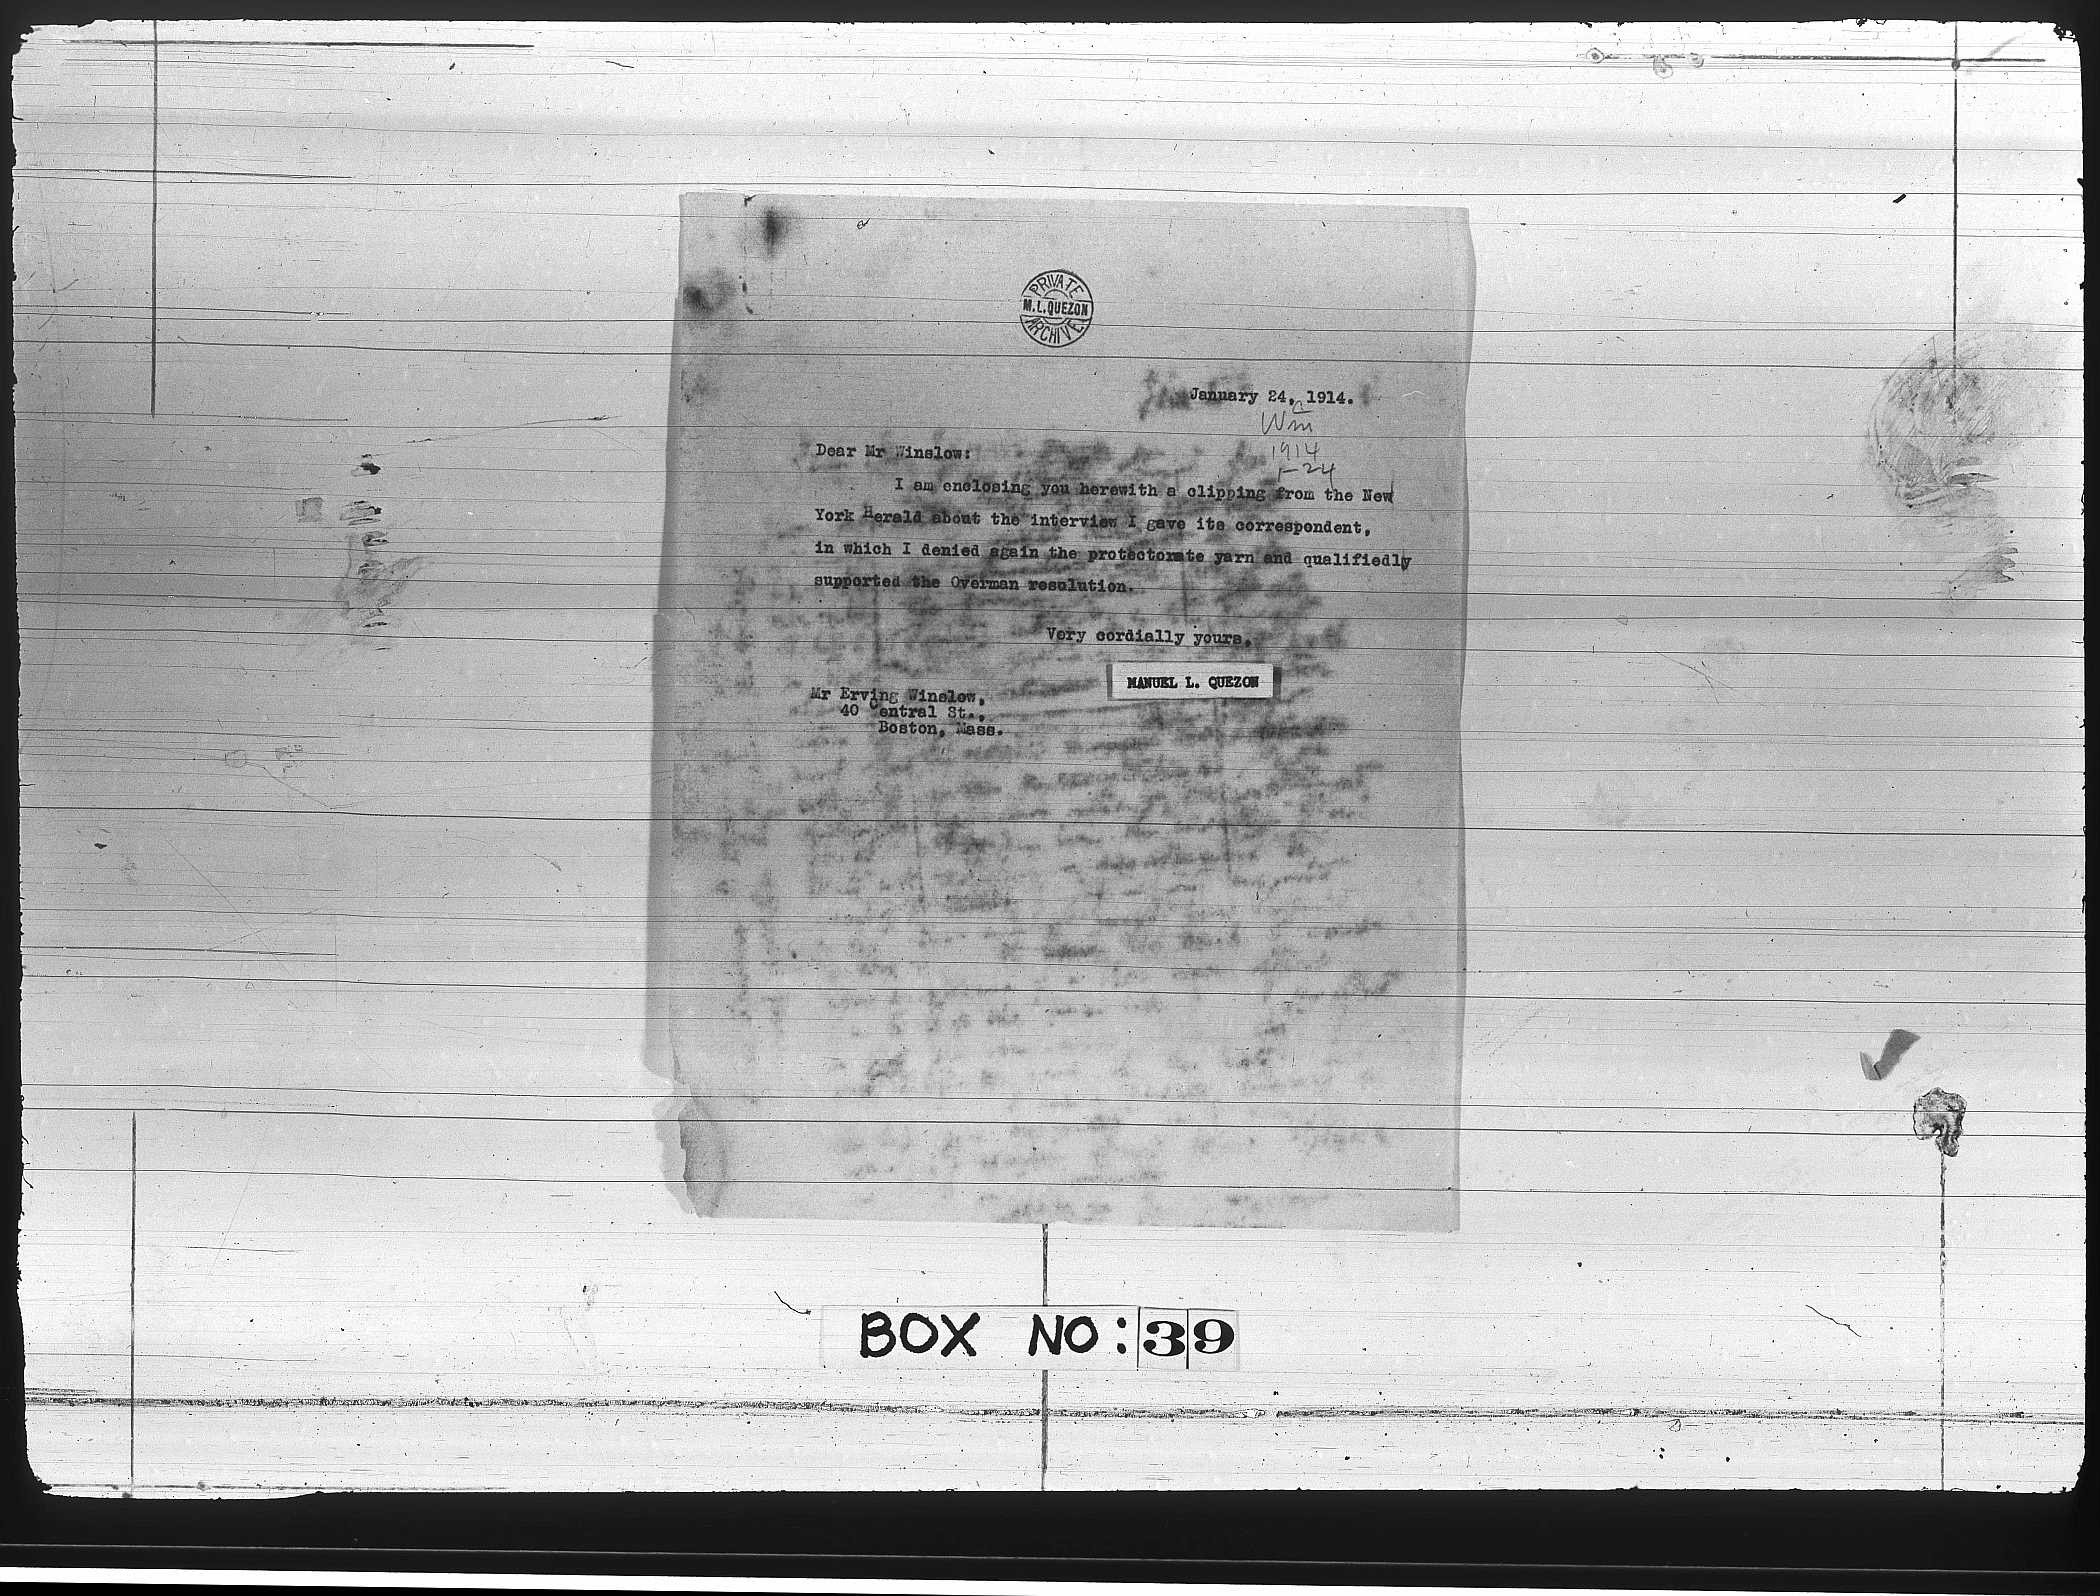 PRIVATE
M.L.QUEZON
ARCHIVE
January 24, 1914.
1914
1-24
Dear Mr Winslow:
I am enclosing you herewith a clipping from the New
York Herald about the interview I gave its correspondent,
in which I denied again the protectorate yarn and qualifiedly
supported the Overman resolution.
Very cordially yours,
MANUEL L. QUEZON
Mr Erving Winslow,
40 Central St.,
Boston, Mass.
BOX NO: 39